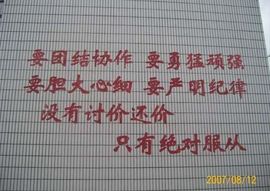 要团结协作 要勇猛顽强
要胆大心细 要严明纪律
没有讨价还价
只有绝对服从
2007/08/12